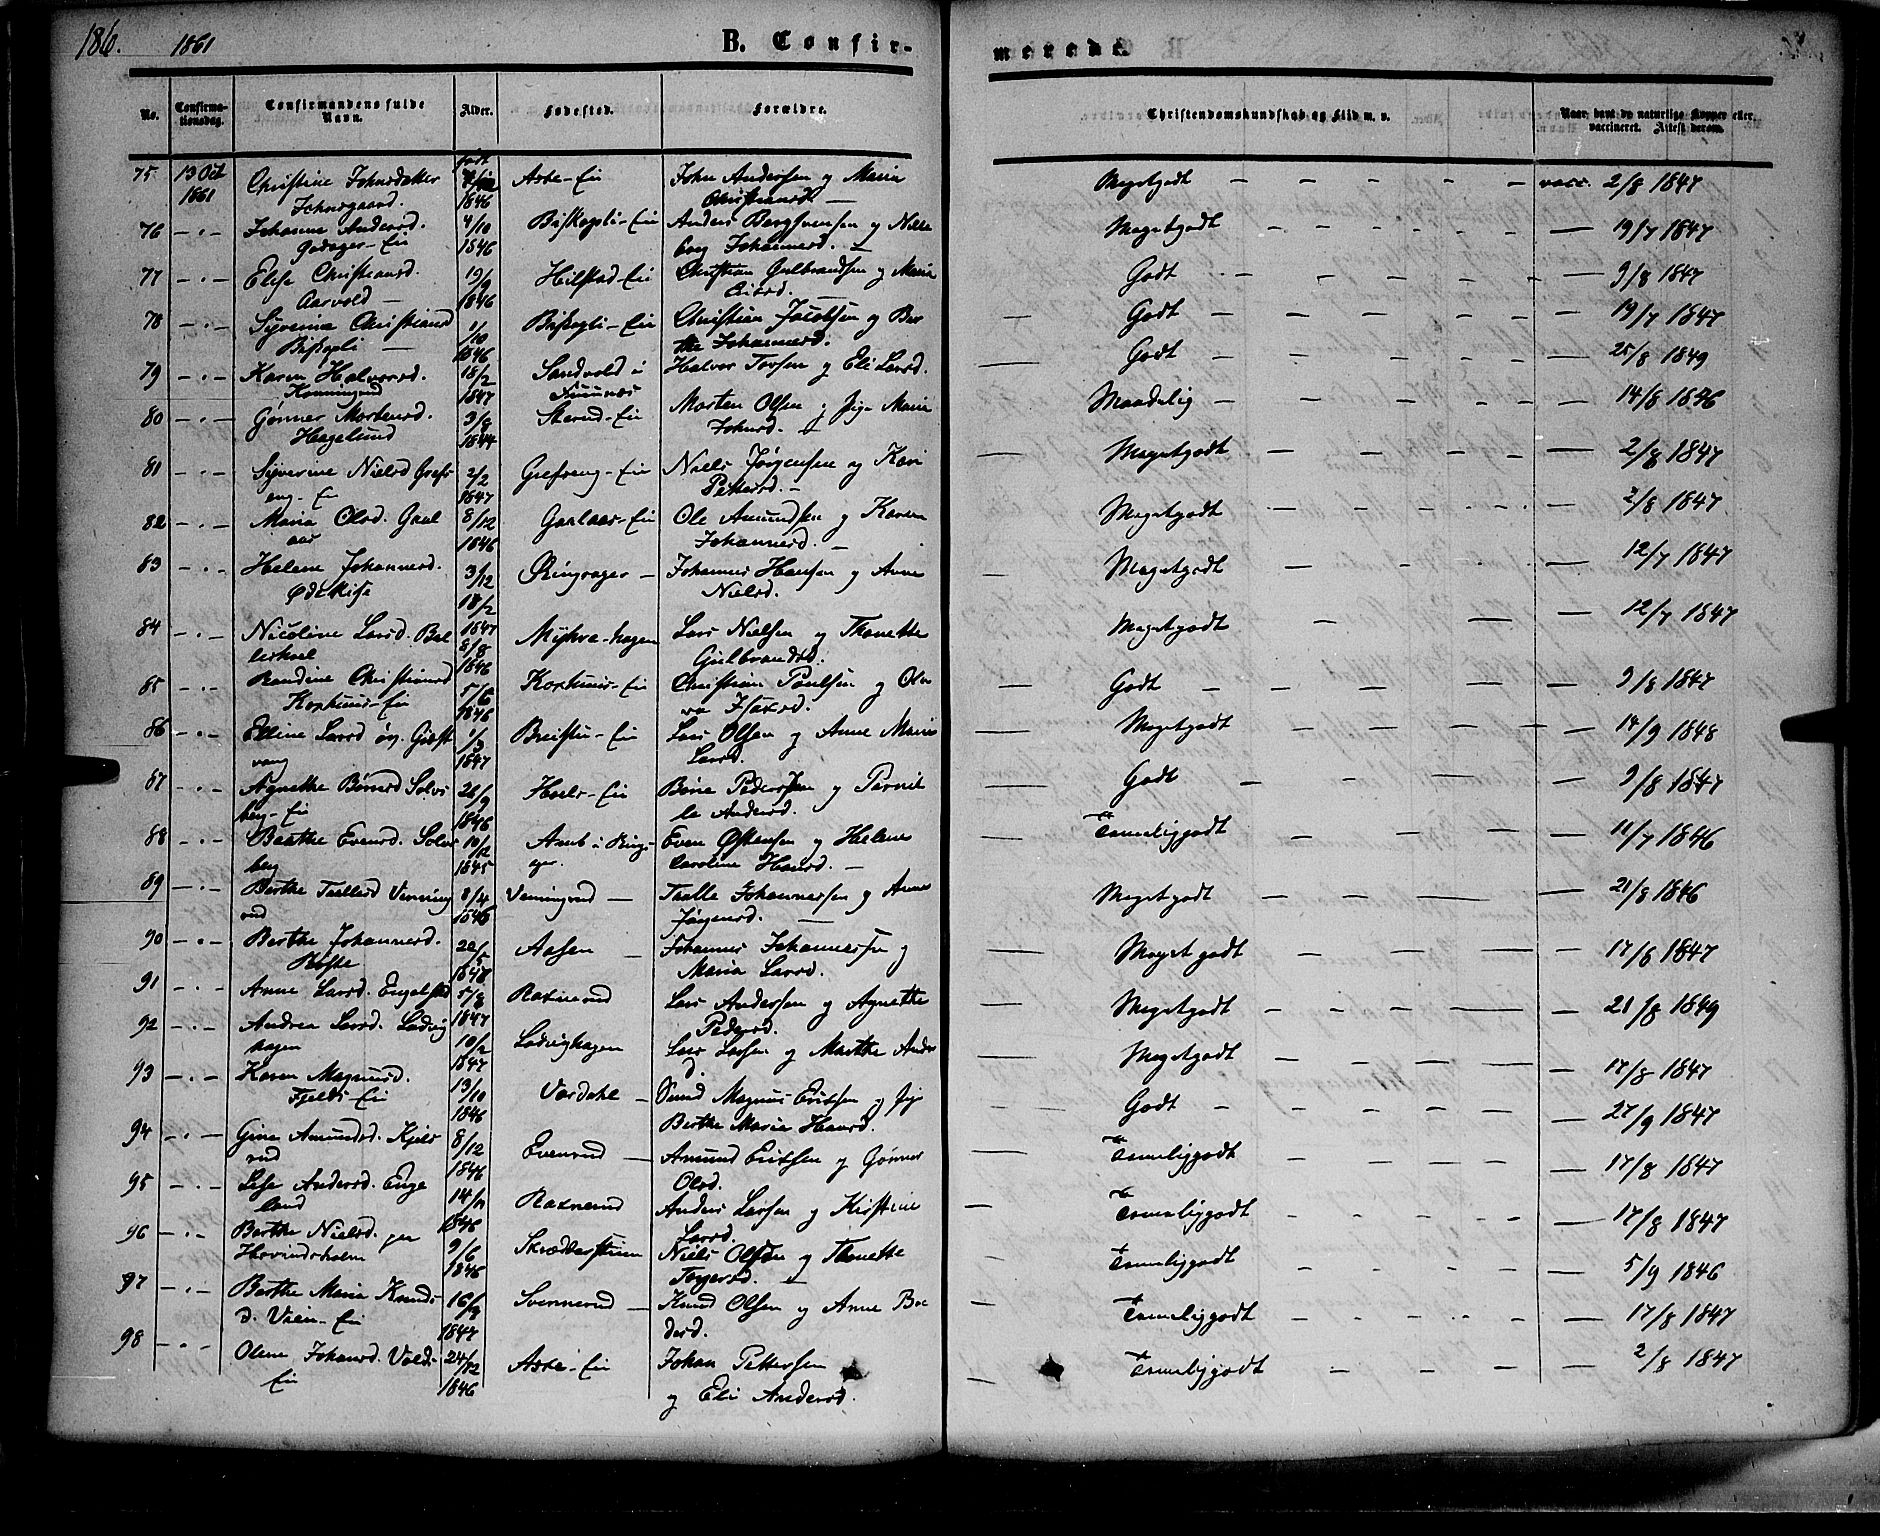 186. 1861 B. Confir- merede.
No. Confirma-tionsdag. Confirmandens fulde Navn. Alder. Fødested. Forældre. Christendomskundskab og Flid m. v. Naar havt de naturlige Kopper eller vaccineret. Attest derom.
født
75 13 Oct 1861 Christine Johnsdatter 1846 Aste-Ei John Andersen og Maria Christiansd. — Megetgodt — vacc. 2/8 1847
76 -"- Johanne Andersd. -Ei 4/10 1846 Biskopli-Ei Anders og Johannesd. — Megetgodt — 19/7 1847
77 -"- Elise Christiansd. Aarvold — 19/9 1846 Hilstad-Ei Christian Gulbrandsen og Maria — Godt — 9/8 1847
78 -"- Syverine Christiansd Biskopli — 1/10 1846 Biskopli-Ei Christian Jacobsen og Berthe Johannesd. — Godt — 19/7 1847
79 -"- Karen Halvorsd. 18/2 1847 Sandvold i Halvor Torsen og Eli Larsd. — Godt — 25/8 1849
80 -"- Gønner Mortensd. Hagelund 3/8 1844 Skerud-Ei Morten Olsen og Pige Maria Johnsd. — Maadelig — 14/8 1846
81 -"- Syverine Nielsd Grefseng-Ei 2/2 1847 Grefseng-Ei Niels Jørgensen og Kari Pettersd. — Megetgodt — 2/8 1847
82 -"- Maria Olsd. Gaalaas 8/12 1846 Gaalaas-Ei Ole Amundsen og Karen Johannesd. — Megetgodt — 2/8 1847
83 -"- Helene Johannesd. Ødekise 3/12 Ringsager — Johannes Hansen og Anne Nielsd. — Megetgodt — 12/7 1847
84 -"- Nicoline Larsd. 18/2 1847 Myhra-hagen Lars Nielsen og Thonette Gulbrandsd. Megetgodt — 12/7 1847
85 -"- Randine Christiansd Korshuus-Ei 5/6 1846 Korshuus-Ei Christian Poulsen og — Godt — 9/8 1847
86 -"- Elline Larsd øv. 1847 Breistu-Ei Lars Olsen og Anne Marie Larsd. — Megetgodt — 14/9 1848
87 -"- Agnethe Børresd Solvsberg-Ei 26/9 1846 Hoels-Ei Børre Pedersen og Pernille Andersd. — Godt — 9/8 1847
88 -"- Berthe Evensd. Solvsberg 10/12 1845 i Ringsager. Even Østensen og Helene Caroline Hansd. — Temeliggodt — 11/7 1846
89 -"- Berthe Tollersd Venningrud 8/4 1846 Venningrud — Johannessen og Anne Jørgensd. — Megetgodt — 21/8 1846
90 -"- Berthe Johannesd. 20/5 Aasen — Johannes Johannessen og Maria Larsd. — Megetgodt — 17/8 1847
91 -"- Anne Larsd. Engelstad 5/8 1847 Raxnerud Lars Andersen og Agnethe Pedersd. — Megetgodt — 21/8 1849
92 -"- Andrea Larsd. Ludvighagen 10/2 1847 Ludvighagen Lars Larsen og Marthe Andersd. — Megetgodt — 17/8 1847
93 -"- Karen Magnusd. Fjelds-Ei 13/10 1846 Vardahl — Magnus Ericksen og Pige Berthe Maria Hansd. — Godt — 27/9 1847
94 -"- Gine Amundsd. Kjelsrud 8/12 1846 Evensrud — Amund Ericksen og Gønner Olsd. — Temeliggodt — 17/8 1847
95 -"- Lise Andersd. Engeland 1846 Raxnerud Anders Larsen og Kirstine Larsd. — Temeliggodt — 17/8 1847
96 -"- Berthe Nielsd. Hovindsholm 9/6 1846 Skrædderstuen Niels Olsen og Thonette — Temeliggodt — 5/9 1846
97 -"- Berthe Maria Knudsd. Vien-Ei 16/9 1847 Svennerud — Knud Olsen og Anne — Temeliggodt — 17/8 1847
98 -"- Olene Johansd. Volds-Ei 24/12 1846 Aste-Ei Johan Pettersen og Eli Andersd. — Temeliggodt — 2/8 1847